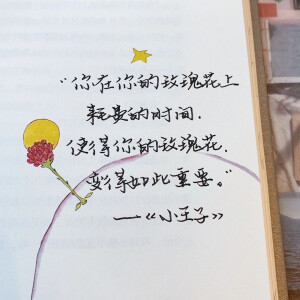 “你在你的玫瑰花上
耗费的时间.
使得你的玫瑰花.
变得如此重要。”
—《小王子》